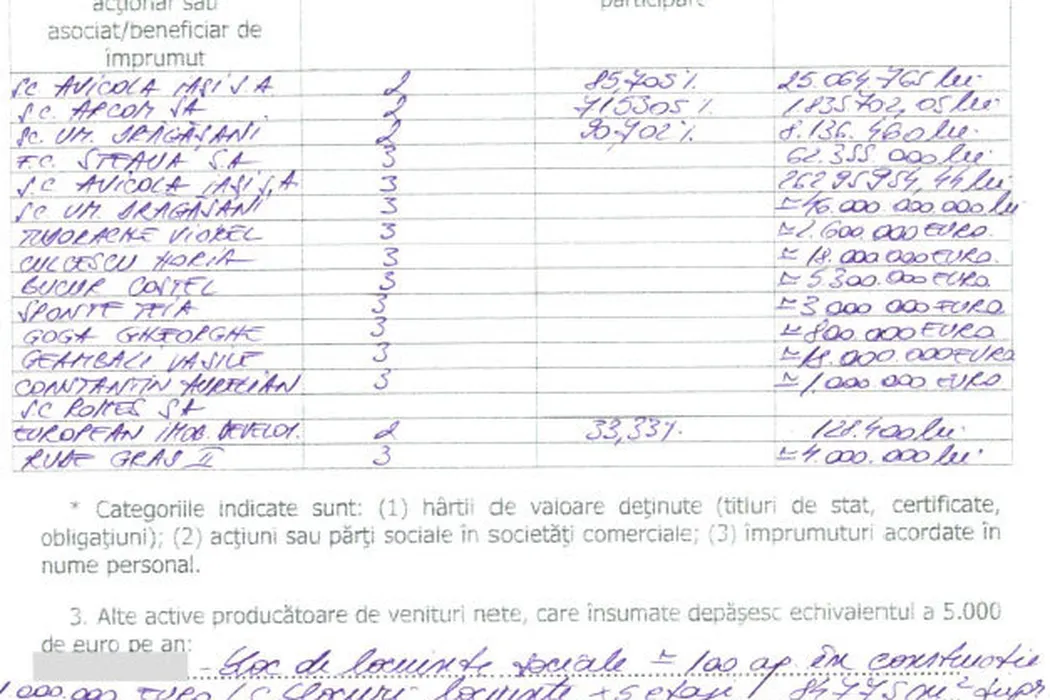 acționar sau
asociat/beneficiar de
împrumut
participare
SC AVICOLA IAȘI S.A. 2 85,705% 25.064.765 lei
S.C. ARCOM SA 2 71,5305% 1.835702,05 lei
SC. UM. DRĂGĂȘANI 2 90,702% 8.136.460 lei
F.C. STEAUA S.A 3 62.355.000 lei
S.C AVICOLA IAȘI S.A 3 26295954,44 lei
SC UM. DRAGĂȘANI 3 ≃46.000.000.000 lei
TUDORACHE VIOREL 3 ≃2.600.000 EURO
CULCESCU HORIA 3 ≃18.000 000 EURO.
BUCUR COSTEL 3 ≃5.300.000 EURO
SPONTE 3 ≃3 000 000 EURO
GOGA GHEORGHE 3 ≃800.000 EURO
GEAMBALI VASILE 3 000.000 EURO
CONSTANTIN AURELIAN 3 ≃1.000 000 EURO
SC ROMES SA
EUROPEAN IMOB. DEVELOP. 2 33,33% 128.400 lei
RUDE GRAS II 3 ≃4.000.000 lei
* Categoriile indicate sunt: (1) hârtii de valoare deținute (titluri de stat, certificate,
obligațiuni); (2) acțiuni sau părți sociale în societăți comerciale; (3) împrumuturi acordate în
nume personal.
3. Alte active producătoare de venituri nete, care însumate depășesc echivalentul a 5.000
de euro pe an:
- bloc de locuințe sociale ≃ 100 ap. în construcție
000.000 EURO blocuri locuințe +5 etaje